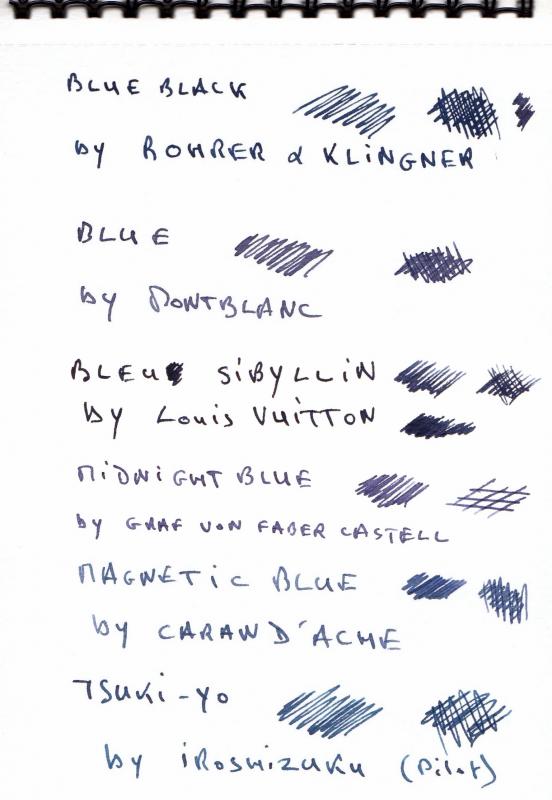 BLUE BLACK
by ROHRER & KLiNGNER
BLUE
by MONTBLANC
BLEU SiBYLLiN
by Louis VUiTTON
MiDNiGHT BLUE
by GRAF VON FABER CASTELL
MAGNETiC BLUE
by CARAN D'ACHE
TSUKi-YO
by iROSHiZUKU (Pilot)